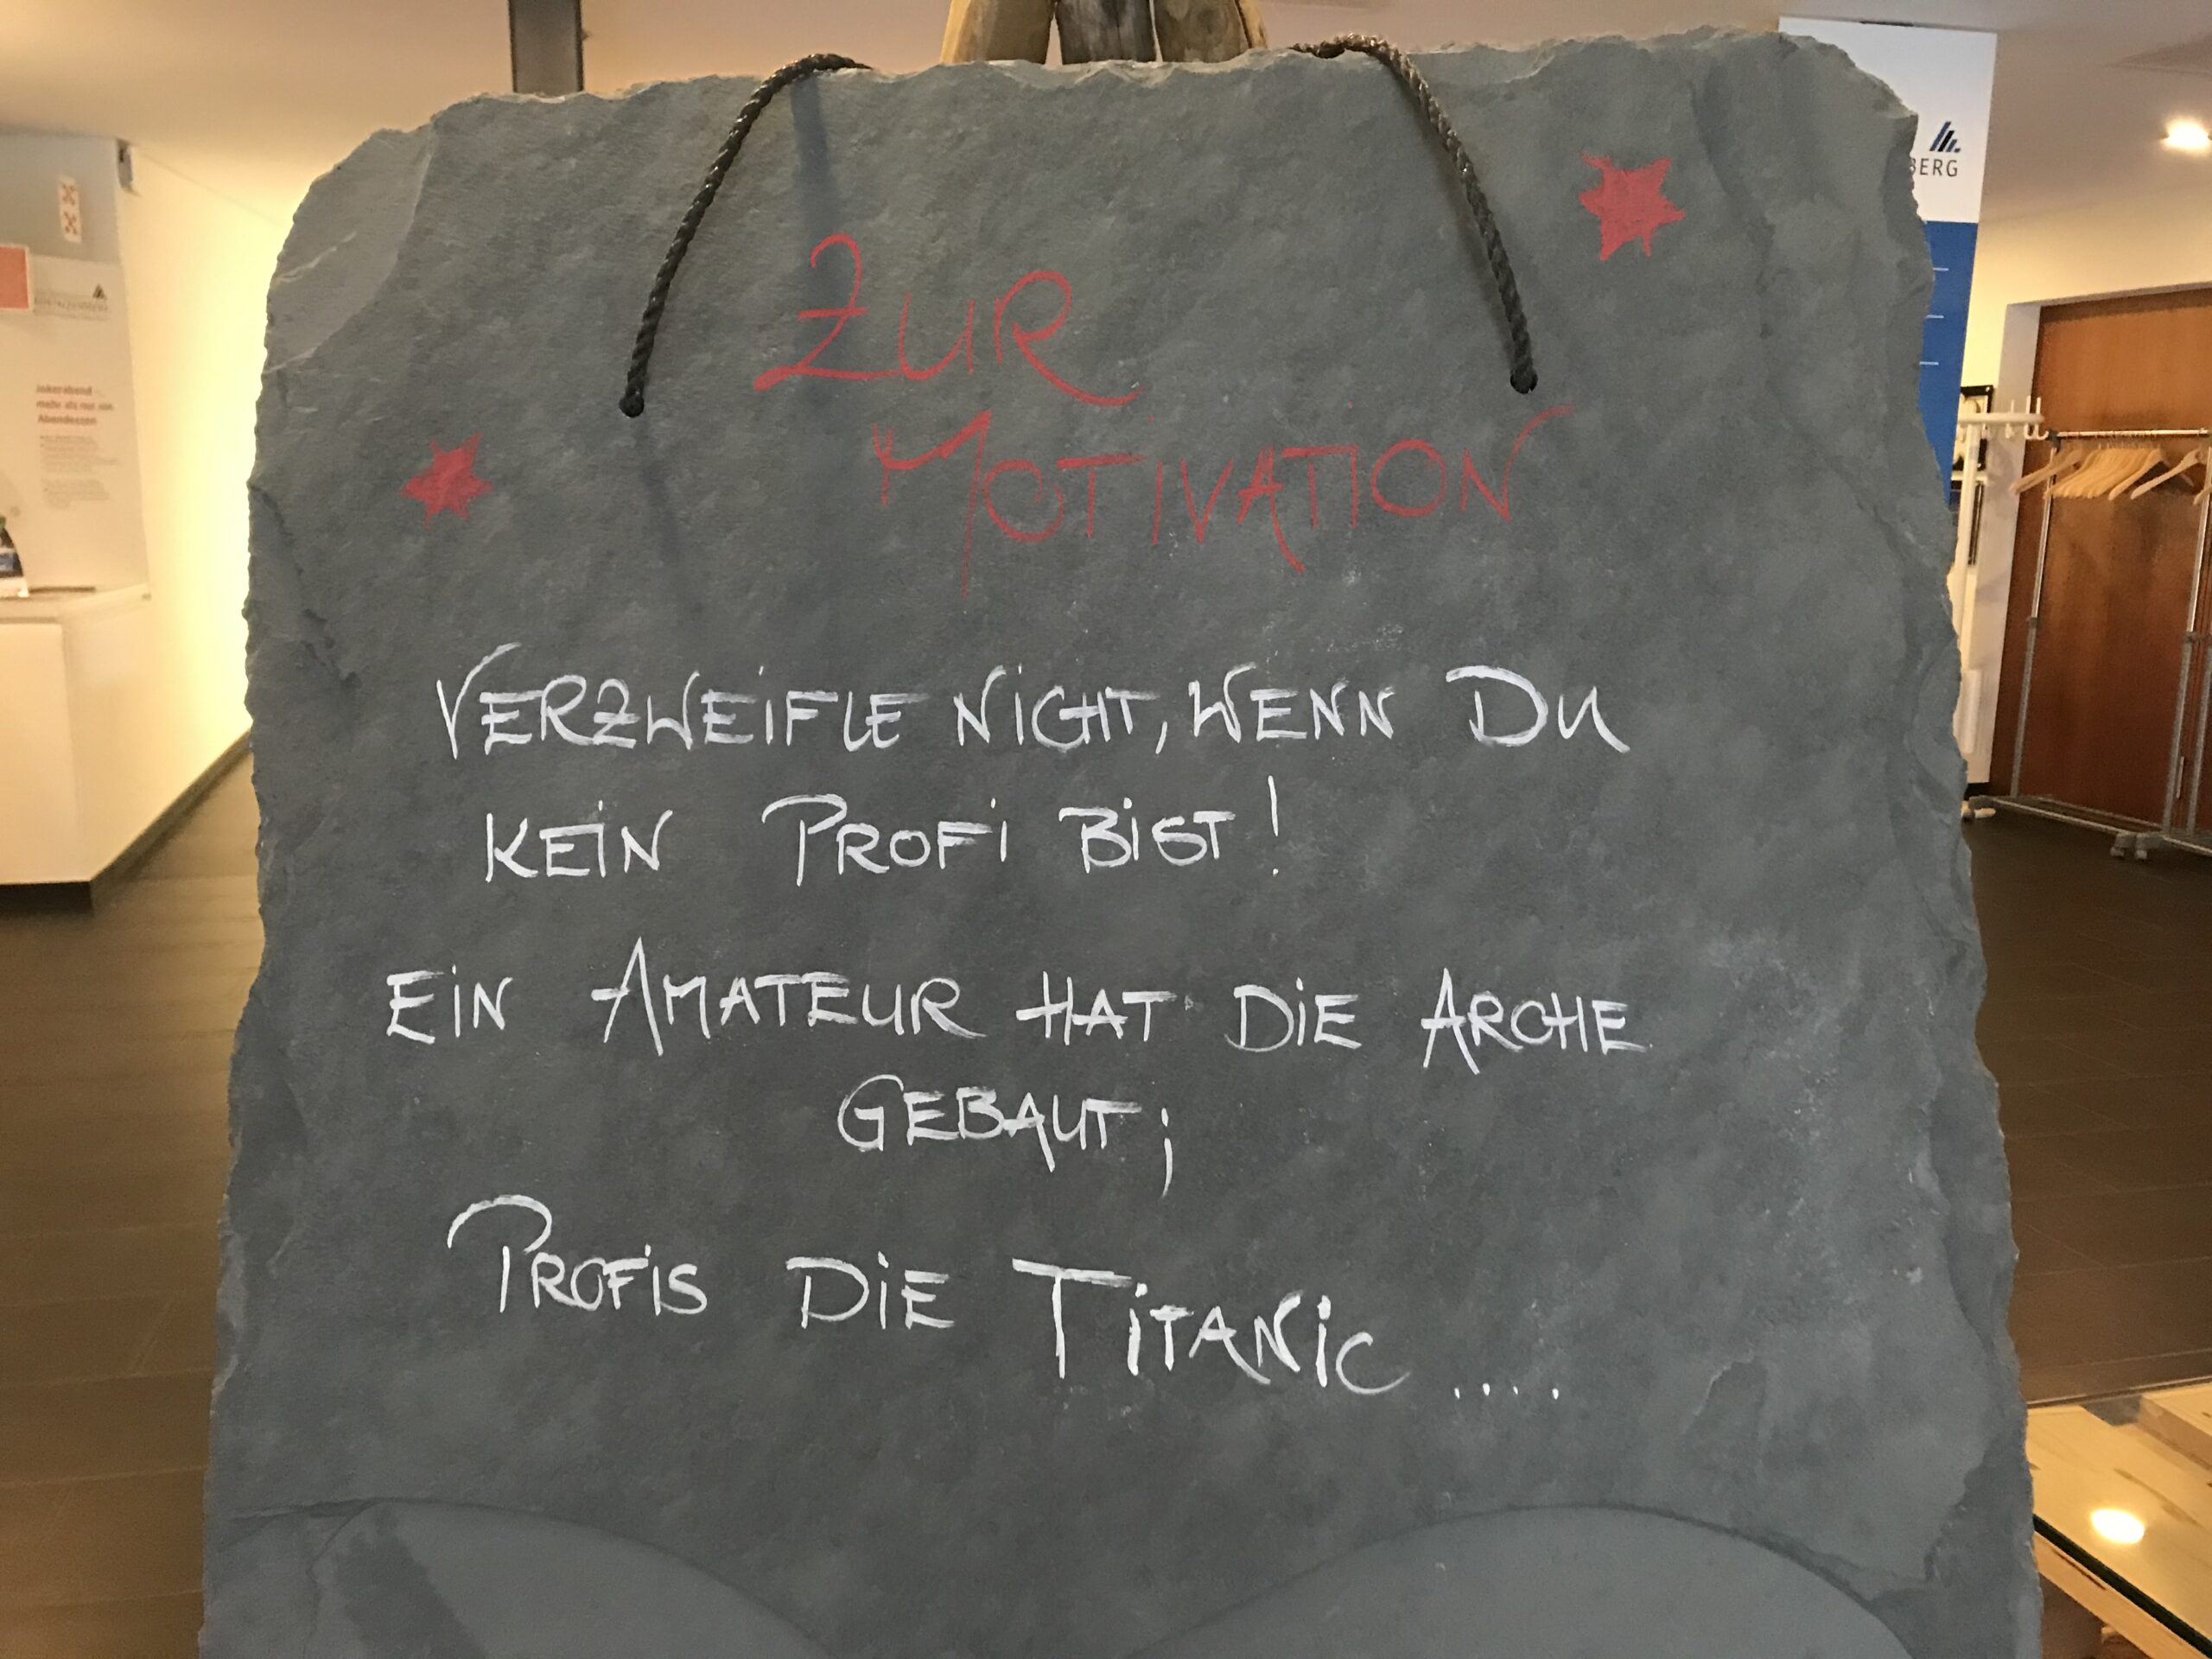 ZUR
MOTIVATION
VERZWEIFLE NICHT, WENN DU
KEIN PROFI BIST!
EIN AMATEUR HAT DIE ARCHE
GEBAUT;
PROFIS DIE TITANIC ....
BERG
Jokerabend
mehr als nur ein
Abendessen